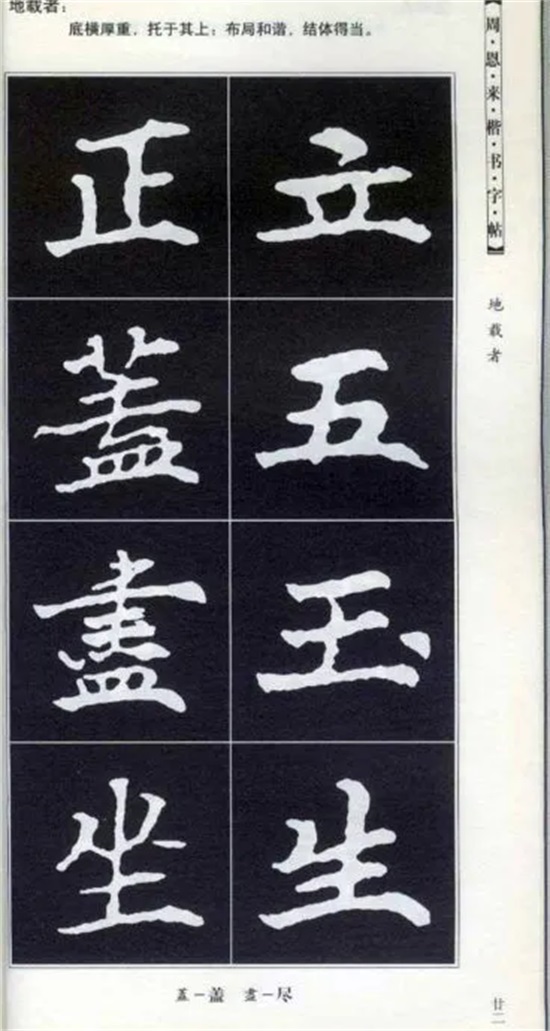 地载者：
底横厚重，托于其上；布局和谐，结体得当。
【周·恩·来·楷·书·字·帖】
地载者
立五玉生
正蓋盡坐
盖－蓋 盡－尽
廿二